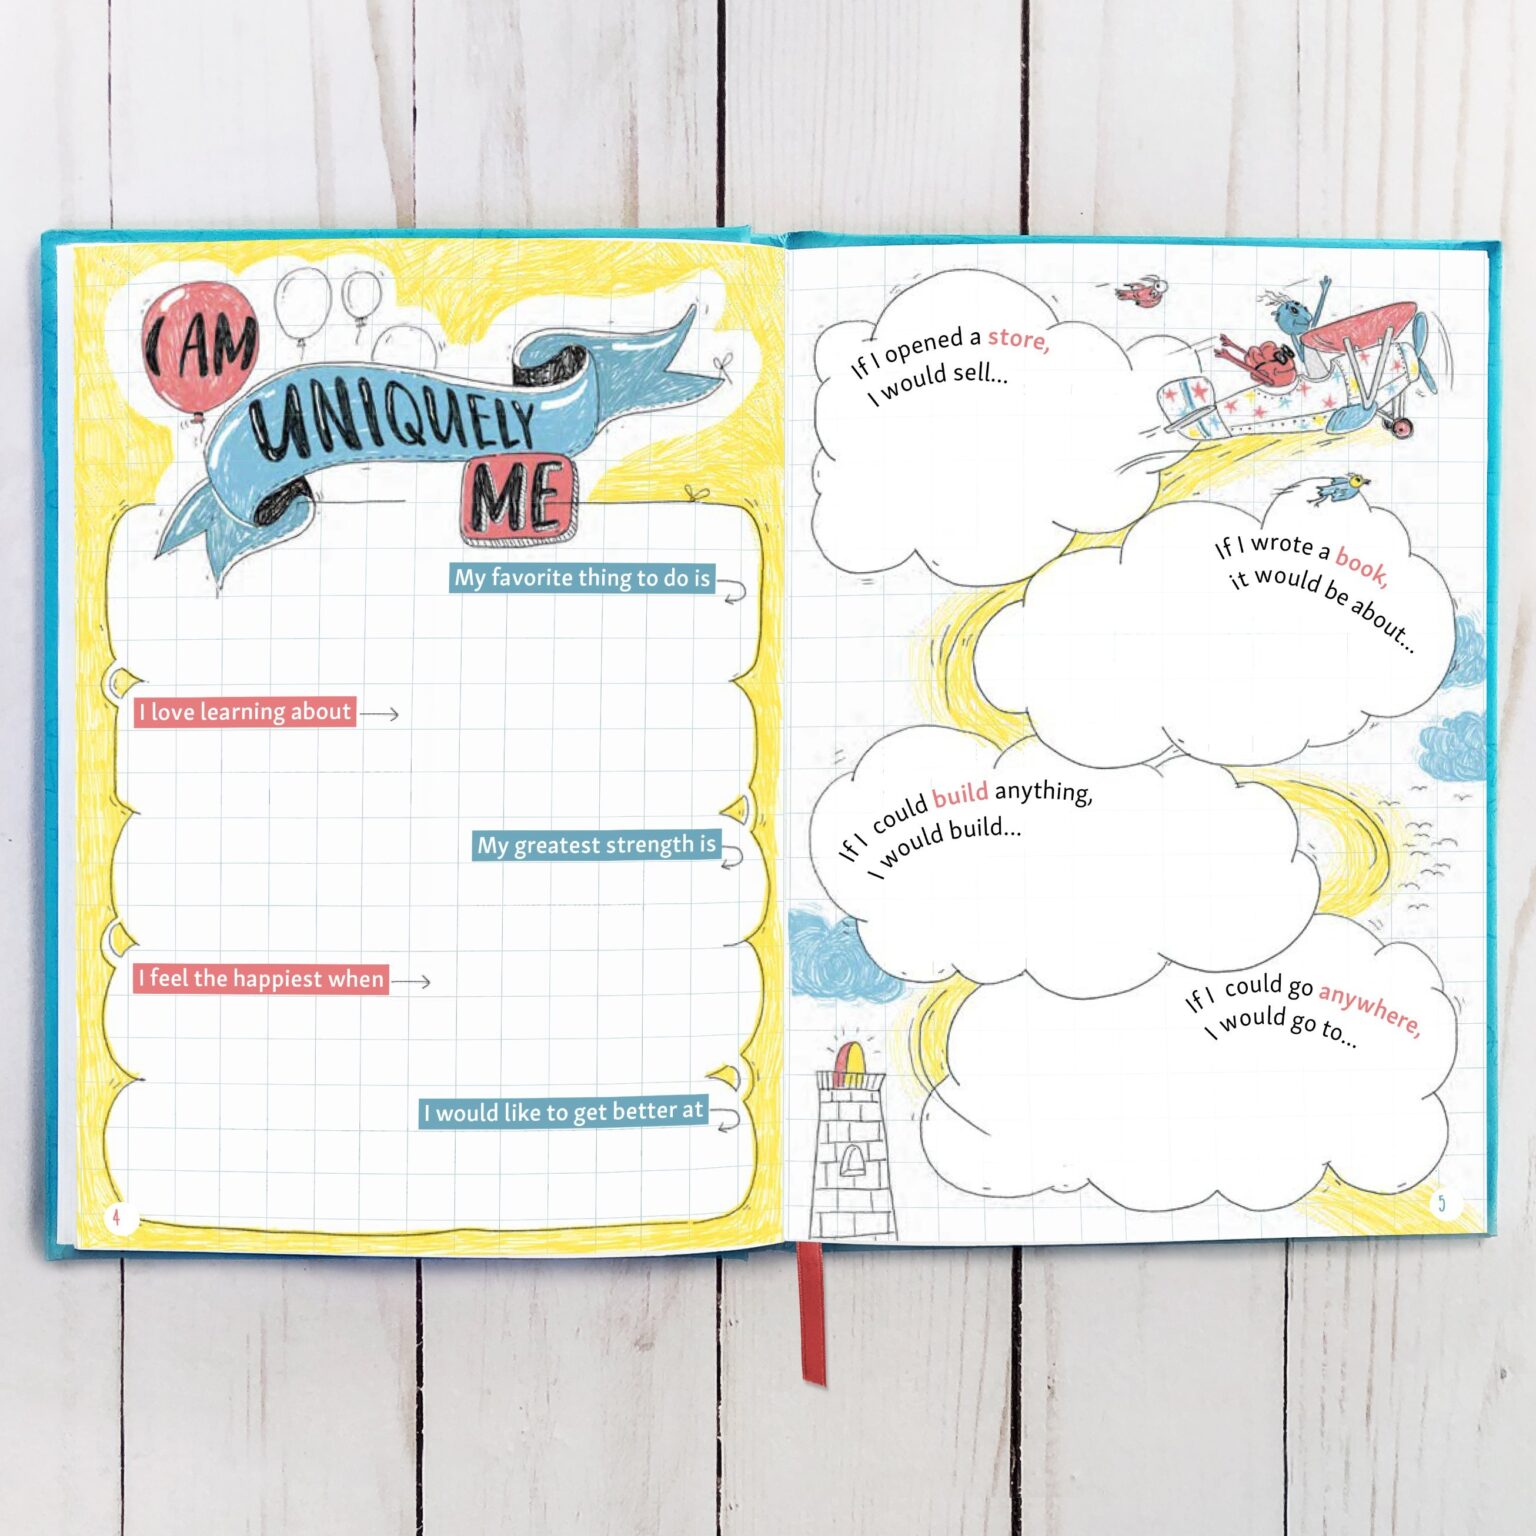 I AM
UNIQUELY
ME
My favorite thing to do is
I love learning about
My greatest strength is
I feel the happiest when
I would like to get better at
4
If I opened a store,
I would sell...
If I wrote a book,
it would be about...
If I could build anything,
I would build...
If I could go anywhere,
I would go to...
5